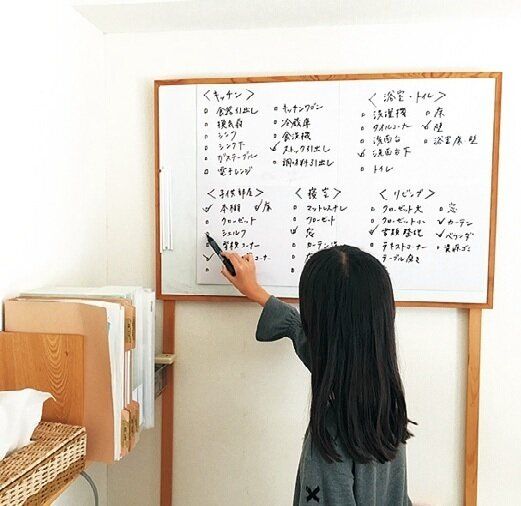 <キッチン>
食器引出し
換気扇
シンク
シンク下
ガステーブル
電子レンジ
キッチンワゴン
冷蔵庫
食洗機
ストック引出し
調味料引出し
<浴室・トイレ>
洗濯機
タイルコーナー
洗面台
洗面台下
トイレ
床
壁
浴室床・壁
<子供部屋>
本棚
床
クローゼット
シェルフ
コーナー
コーナー
<寝室>
マットレスナシ
クローゼット
窓
カーテン
<リビング>
クローゼット大
クローゼット小
書類整理
テキストコーナー
テーブル
窓
カーテン
ベランダ